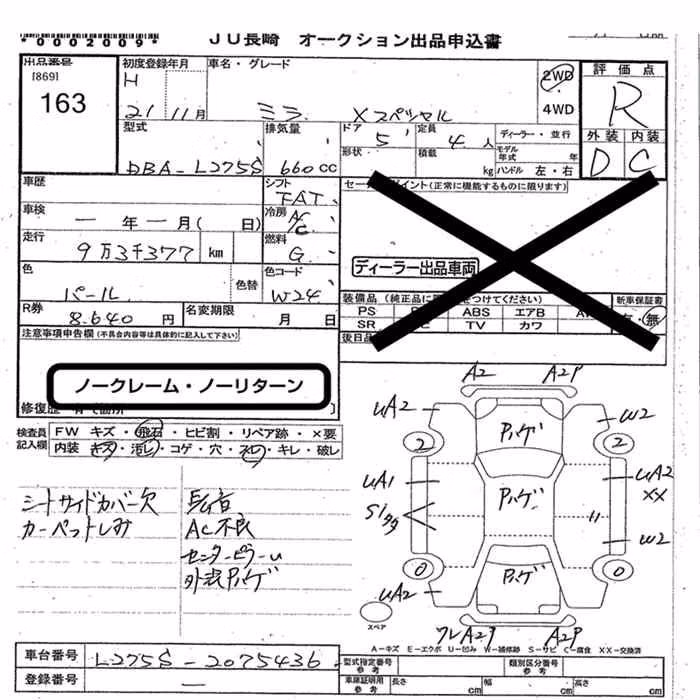 *0002009*
JU長崎 オークション出品申込書
出品番号
[869]
163
初度登録年月
H
21 11月
車名・グレード
ミラ Xスペシャル
2WD
4WD
評価点
R
外装 内装
D C
型式
DBA-L275S
排気量
660cc
ドア 5
形状
定員 4人
積載 kg
ディーラー・並行
モデル年式 年
ハンドル 左・右
車歴
シフト
FAT
セールスポイント(正常に機能するものに限ります)
車検
ー年ー月( 日)
冷房
A/C
走行
9万3千377 km
燃料
G
ディーラー出品車両
色
パール
色替
色コード
W24
装備品(純正品に
をつけてください)
新車保証書
有・無
PS
ABS エアB
SR
TV カワ
R券
8.640円
名変期限
月 日
後日品
注意事項申告欄(不具合内容等は具体的に記入して下さい)
ノークレーム・ノーリターン
修復歴
検査員記入欄
FW キズ・飛石・ヒビ割・リペア跡・×要
内装 キズ・汚レ・コゲ・穴・スレ・キレ・破レ
シートサイドカバー欠
カーペットしみ
AC不良
センターピラーu
外装Pハゲ
A2 A2P
uA2
W2
2 2
Pハゲ
uA1
uA2
××
Pハゲ
S1
W2
0 0
Pハゲ
uA2
スペア
A2P
A-キズ E-エクボ U-凹み W-補修跡 S-サビ C-腐食 ××-交換済
車台番号
L275S-2075436
登録番号
ー
型式指定番号
参考
類別区分番号
参考
車庫証明用
参考
長さ cm 幅 cm 高さ cm